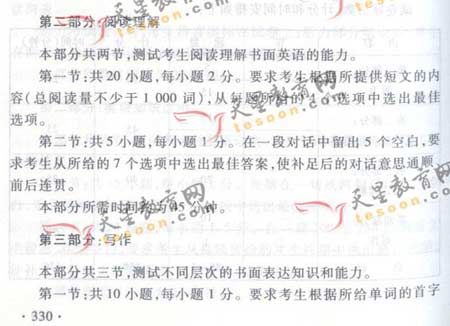 第二部分:阅读理解
本部分共两节,测试考生阅读理解书面英语的能力。
第一节:共 20 小题,每小题 2 分。要求考生根据所提供短文的内
容(总阅读量不少于 1 000 词),从每题所给的 4 个选项中选出最佳
选项。
第二节:共 5 小题,每小题 1 分。在一段对话中留出 5 个空白,要
求考生从所给的 7 个选项中选出最佳答案,使补足后的对话意思通顺,
前后连贯。
本部分所需时间约为 45 分钟。
第三部分:写作
本部分共三节,测试不同层次的书面表达知识和能力。
第一节:共 10 小题,每小题 1 分。要求考生根据所给单词的首字
· 330 ·
天星教育网
tesoon.com
天星教育网
tesoon.com
天星教育网
tesoon.com
天星教育网
tesoon.com